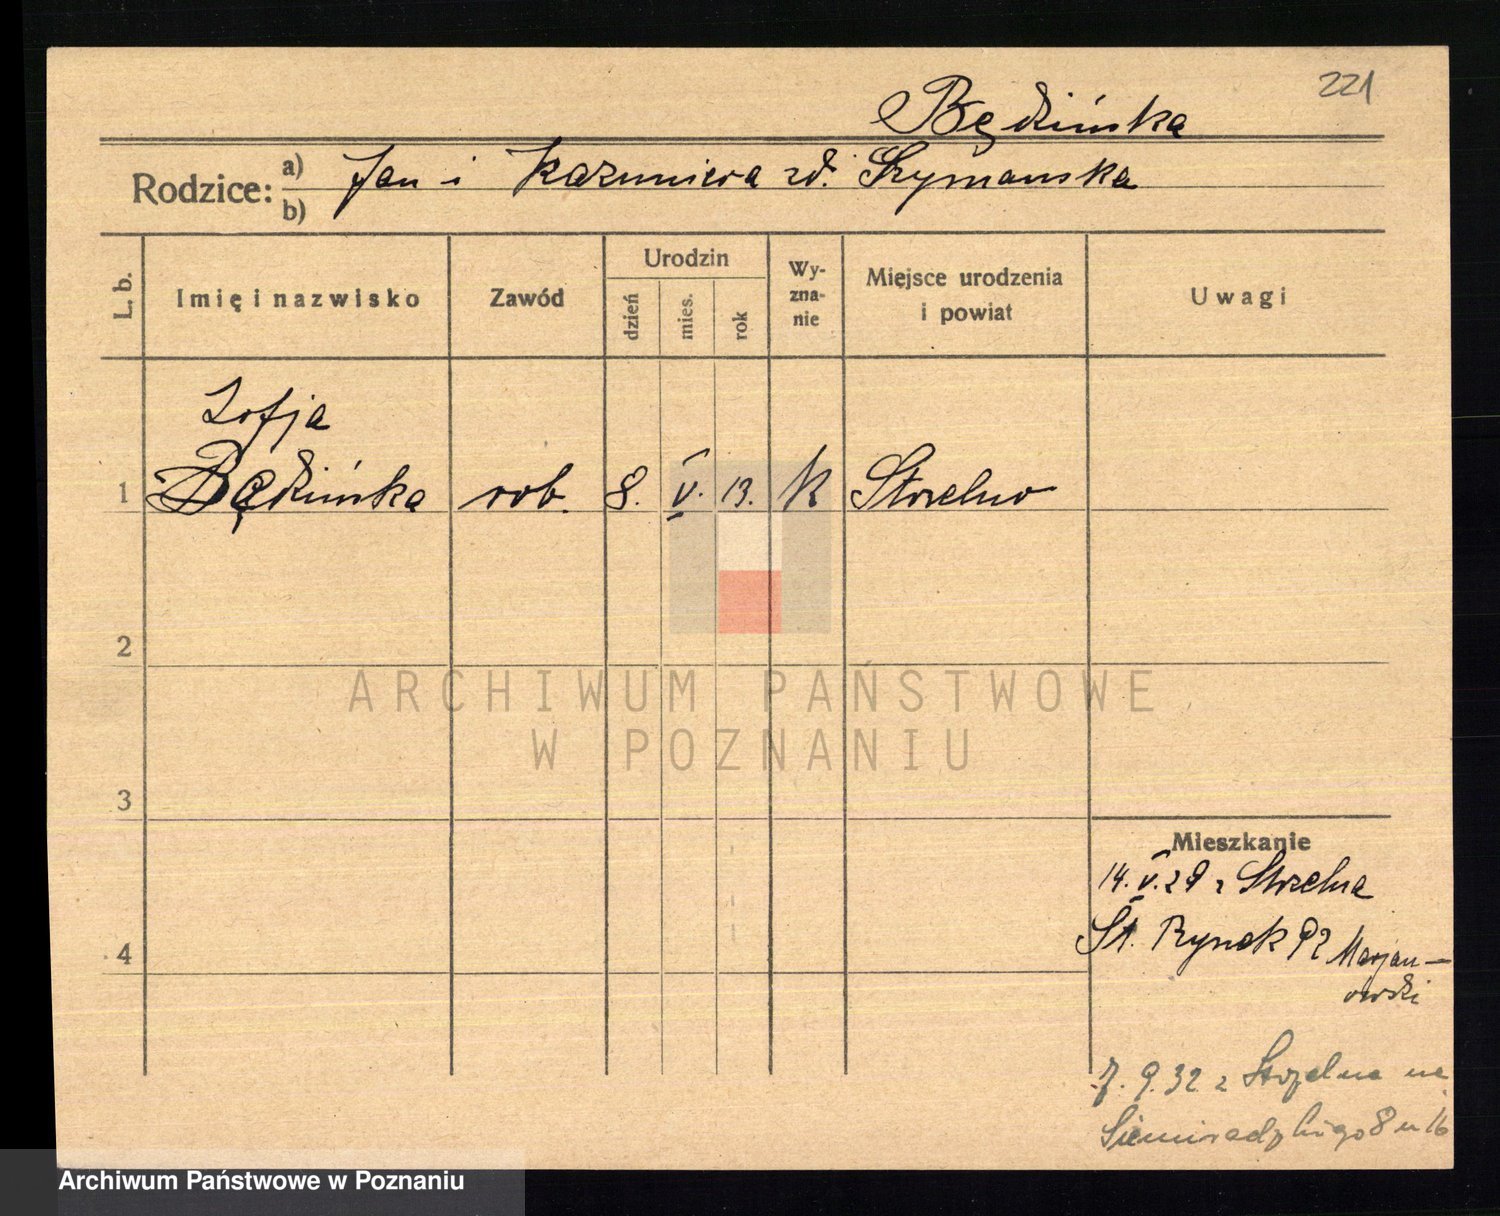 221
Będzińska
Rodzice: a) b) Jan i Kazimiera zd. Szymańska
L. b.
Imię i nazwisko
Zawód
Urodzin
dzień
mies.
rok
Wy-
zna-
nie
Miejsce urodzenia
i powiat
Uwagi
Zofja
1 Będzińska rob. 8. V. 13. k Strzelno
2
3
4
ARCHIWUM PAŃSTWOWE
W POZNANIU
Mieszkanie
14. V. 29 z Strzelna
St. Rynek 92 Marjan-
owski
7. 9. 32 z Strzelna na
Siemiradzkiego 8 u 16
Archiwum Państwowe w Poznaniu